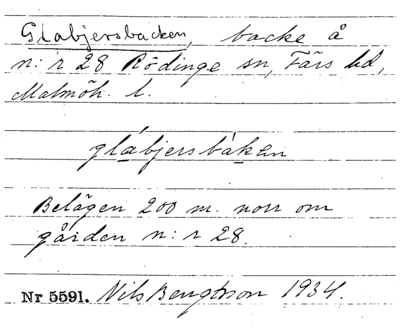 Glabjersbacken, backe å
n:r 28 Rödinge sn, Färs hd,
Malmöh. l.
glábjersbàkan
Belägen 200 m. norr om
gården n:r 28.
Nr 5591. Nils Bengtson 1934.